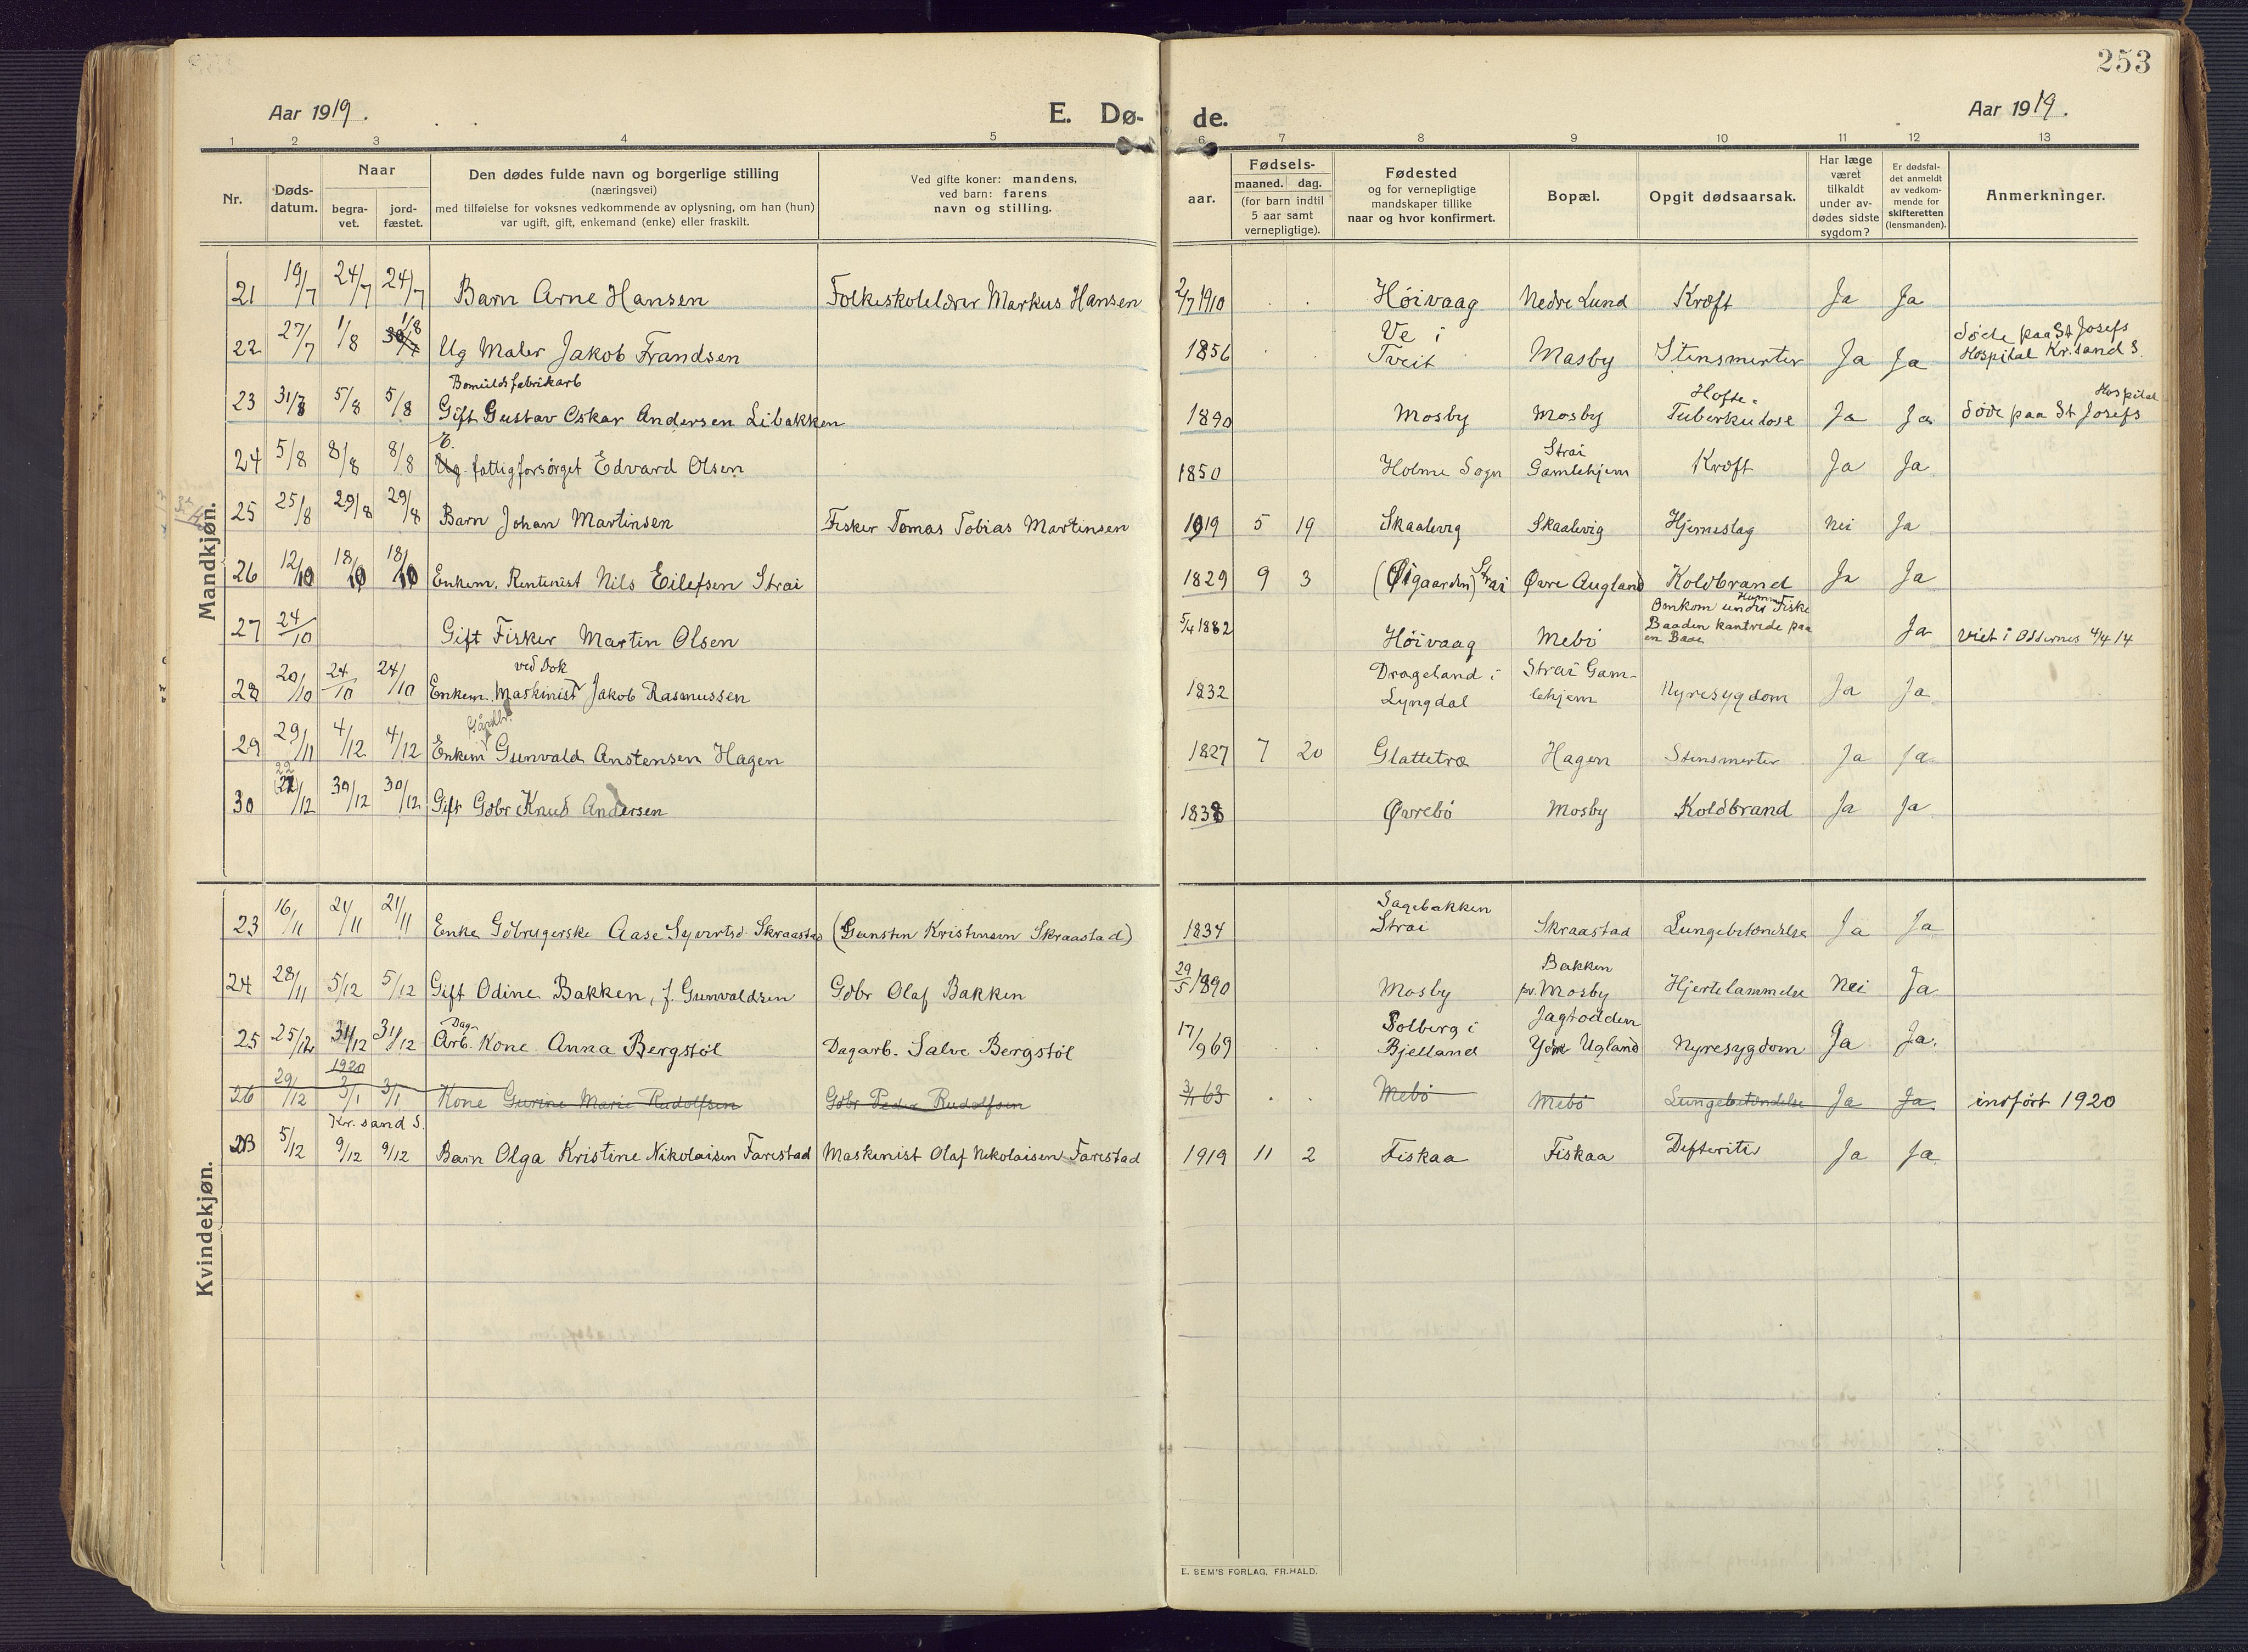 253
Aar 1919. E. Dø- de. Aar 1919.
1 2 3 4 5 6 7 8 9 10 11 12 13
Nr. Døds-datum. Naar begra-vet. jord-fæstet. Den dødes fulde navn og borgerlige stilling (næringsvei) med tilføielse for voksnes vedkommende av oplysning, om han (hun) var ugift, gift, enkemand (enke) eller fraskilt. Ved gifte koner: mandens, ved barn: farens navn og stilling. aar. Fødsels- maaned. dag. (for barn indtil 5 aar samt vernepligtige). Fødested og for vernepligtige mandskaper tillike naar og hvor konfirmert. Bopæl. Opgit dødsaarsak. Har læge været tilkaldt under av-dødes sidste sygdom? Er dødsfal-det anmeldt av vedkom-mende for skifteretten (lensmanden). Anmerkninger.
Mandkjøn.
21 19/7 24/7 24/7 Barn Arne Hansen Folkeskolelærer Markus Hansen 2/7 1910 Høivaag Nedre Lund Kræft Ja Ja
22 27/7 1/8 1/8 Ug Maler Jakob Frandsen 1856 Ve i Tveit Mosby Stensmerter Ja Ja Døde paa St Josefs Hospital Kr.sand S.
23 31/7 5/8 5/8 Bomuldsfabrikarb Gift Gustav Oskar Andersen Libakken 1890 Mosby Mosby Hofte- Tuberkulose Ja Ja Døde paa St Josefs Hospital
24 5/8 8/8 8/8 E. Ug. fattigforsørget Edvard Olsen 1850 Holme Sogn Strai Gamlehjem Kræft Ja Ja
25 25/8 29/8 29/8 Barn Johan Martinsen Fisker Tomas Tobias Martinsen 1919 5 19 Skaalevig Skaalevig Hjerneslag Nei Ja
26 12/10 18/10 18/10 Enkem. Rentenist Nils Eilefsen Strai 1829 9 3 (Øigaarden) Strai Øvre Augland Koldbrand Ja Ja
27 24/10 Gift Fisker Martin Olsen 5/4 1882 Høivaag Mebö Omkom under Hummerfiske Baaden kantrede paa en Baae Ja Viet i Oddernes 4/4 14
28 20/10 24/10 24/10 Enkem. Maskinist ved Dok Jakob Rasmussen 1832 Drageland i Lyngdal Strai Gam-lehjem Nyresygdom Ja Ja
29 29/11 4/12 4/12 Enkem Gårdbr. Gunvald Anstensen Hagen 1827 7 20 Glattetræ Hagen Stensmerter Ja Ja
30 22/12 30/12 30/12 Gift Gdbr Knud Andersen 1838 Øvrebö Mosby Koldbrand Ja Ja
Kvindekjøn.
23 16/11 21/11 21/11 Enke Gdbrugerske Aase Syvertsd. Skraastad (Gunsten Kristensen Skraastad) 1834 Sagebakken Strai Skraastad Lungebetændelse Ja Ja
24 28/11 5/12 5/12 Gift Odine Bakken, f. Gunvaldsen Gdbr Olaf Bakken 29/5 1890 Mosby Bakken pr. Mosby Hjertelammelse Nei Ja
25 25/12 31/12 31/12 Dag-Arb. Kone Anna Bergstöl Dagarb. Salve Bergstöl 17/9 69 Solberg i Bjelland Jagtodden Ydre Ugland Nyresygdom Ja Ja.
26 29/12 1920 3/1 3/1 Kone Gurine Marie Rudolfsen Gdbr Peder Rudolfsen 63 Mebö Mebö Lungebetændelse Ja Ja. indført 1920
Kr. sand S.
5/12 9/12 9/12 Barn Olga Kristine Nikolaisen Farestad Maskinist Olaf Nikolaisen Farestad 1919 11 2 Fiskaa Fiskaa Defteriti Ja Ja
E. SEM'S FORLAG, FR.HALD.